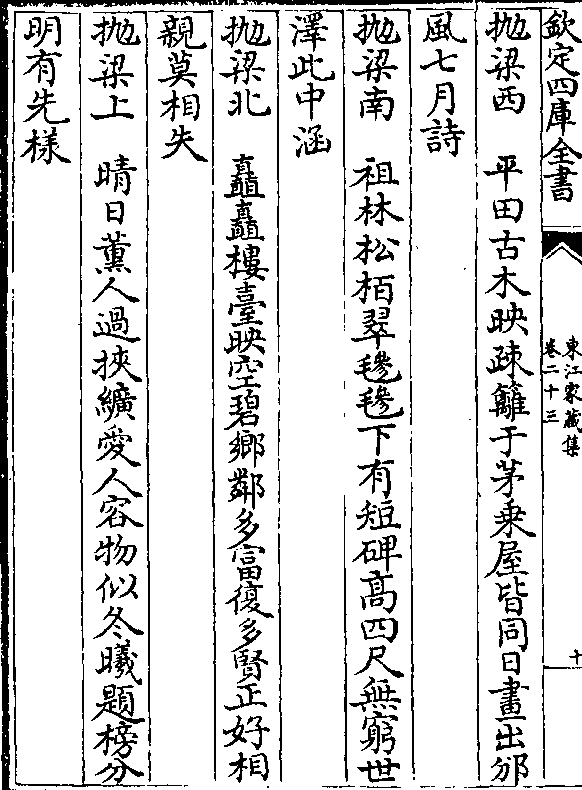 欽定四庫全書
東江家藏集
卷二十三
十
拋梁西　平田古木映疎籬于茅乗屋皆同日畫出邠
風七月詩
拋梁南　祖林松栢翠毿毿下有短碑髙四尺無窮世
澤此中涵
拋梁北　矗矗樓臺映空碧鄉鄰多富復多賢正好相
親莫相失
拋梁上　晴日薰人過挾纊愛人容物似冬曦題榜分
明有先様